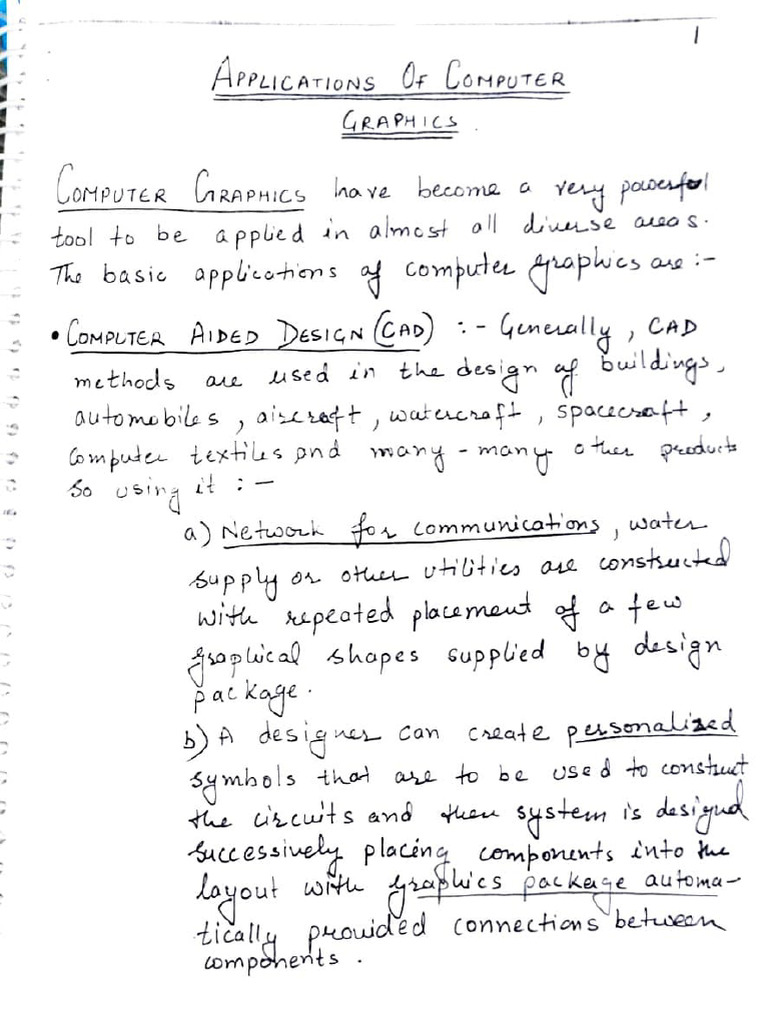 1
APPLICATIONS OF COMPUTER
GRAPHICS.
COMPUTER GRAPHICS have become a very powerful
tool to be applied in almost all diverse areas.
The basic applications of computer graphics are :-
• COMPUTER AIDED DESIGN (CAD) :- Generally, CAD
methods are used in the design of buildings,
automobiles, aircraft, watercraft, spacecraft,
computer textiles and many - many other products
So using it :-
a) Network for communications, water
supply or other utilities are constructed
with repeated placement of a few
graphical shapes supplied by design
package.
b) A designer can create personalized
symbols that are to be used to construct
the circuits and then system is designed
successively placing components into the
layout with graphics package automa-
tically provided connections between
components.